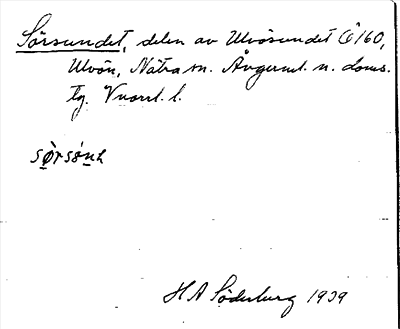 Sörsundet, delen av Ulvösundet Ö 160,
Ulvön, Nätra sn. Ångerml. n. doms.
tg. Vnorrl. l.
H A Söderburg 1939